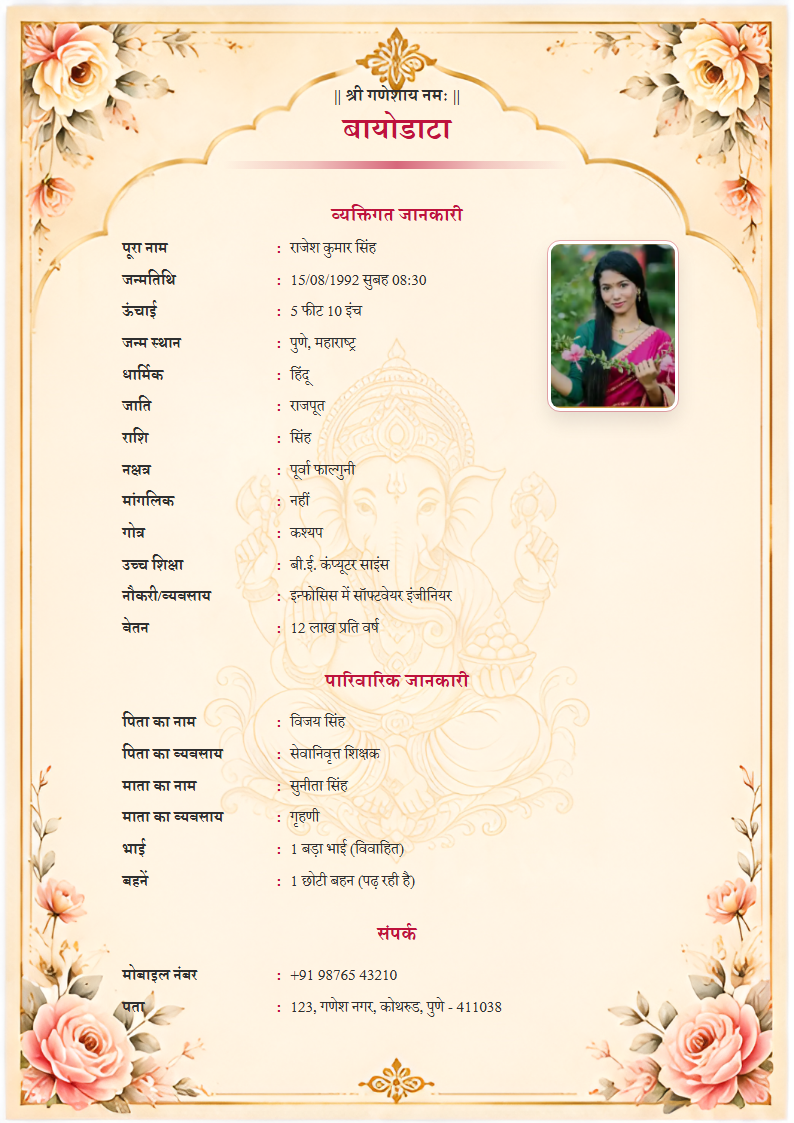 || श्री गणेशाय नमः ||
बायोडाटा
व्यक्तिगत जानकारी
पूरा नाम : राजेश कुमार सिंह
जन्मतिथि : 15/08/1992 सुबह 08:30
ऊंचाई : 5 फीट 10 इंच
जन्म स्थान : पुणे, महाराष्ट्र
धार्मिक : हिंदू
जाति : राजपूत
राशि : सिंह
नक्षत्र : पूर्वा फाल्गुनी
मांगलिक : नहीं
गोत्र : कश्यप
उच्च शिक्षा : बी.ई. कंप्यूटर साइंस
नौकरी/व्यवसाय : इन्फोसिस में सॉफ्टवेयर इंजीनियर
वेतन : 12 लाख प्रति वर्ष
पारिवारिक जानकारी
पिता का नाम : विजय सिंह
पिता का व्यवसाय : सेवानिवृत्त शिक्षक
माता का नाम : सुनीता सिंह
माता का व्यवसाय : गृहणी
भाई : 1 बड़ा भाई (विवाहित)
बहनें : 1 छोटी बहन (पढ़ रही है)
संपर्क
मोबाइल नंबर : +91 98765 43210
पता : 123, गणेश नगर, कोथरुड, पुणे - 411038